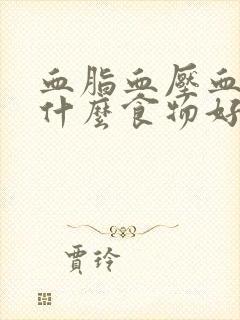 血脂血壓血
什麼食物好
賈玲